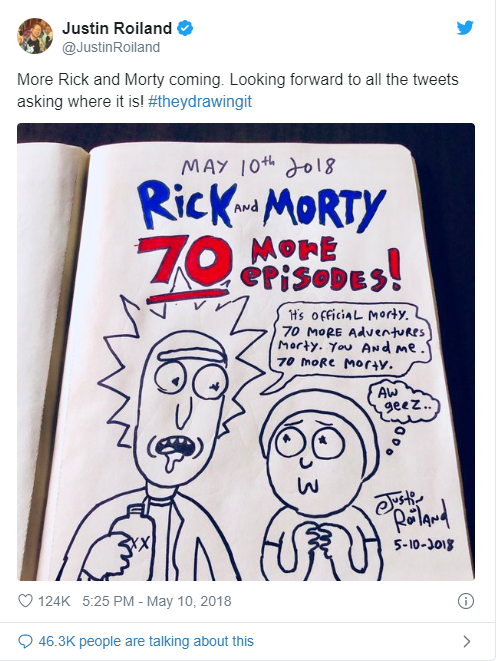 Justin Roiland
@JustinRoiland
More Rick and Morty coming. Looking forward to all the tweets
asking where it is! #theydrawingit
MAY 10th 2018
RicK AND MORTY
70 MORE
EPiSODES!
it's official Morty.
70 MORE AdventuRES
Morty. You And me.
70 moRe MoRtY.
Aw
geeZ..
Justin
RoiLANd
5-10-2018
124K 5:25 PM - May 10, 2018
46.3K people are talking about this